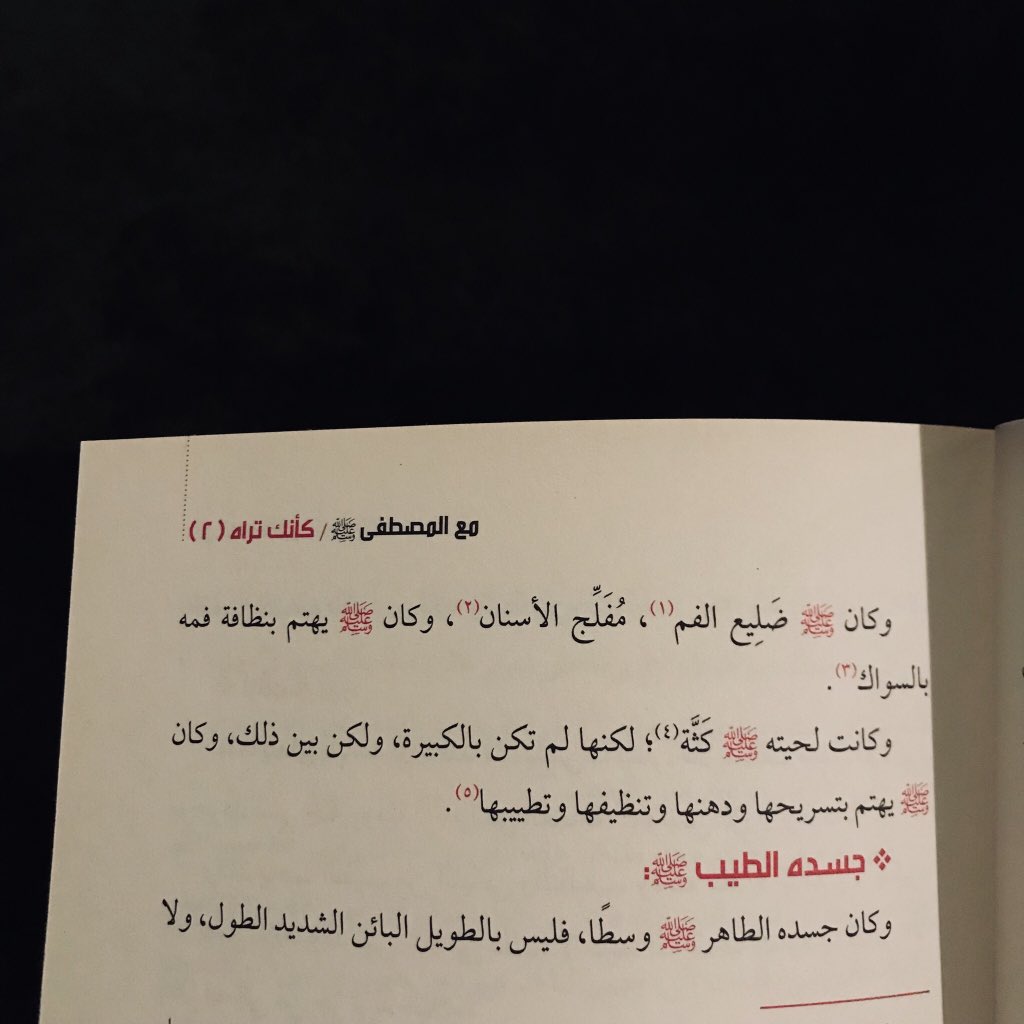 مع المصطفى ﷺ / كأنك تراه (٢)
وكان ﷺ ضَلِيع الفم(١)، مُفَلَّج الأسنان(٢)، وكان ﷺ يهتم بنظافة فمه
بالسواك(٣).
وكانت لحيته ﷺ كَثَّة(٤)؛ لكنها لم تكن بالكبيرة، ولكن بين ذلك، وكان
ﷺ يهتم بتسريحها ودهنها وتنظيفها وتطييبها(٥).
❖ جسده الطيب ﷺ:
وكان جسده الطاهر ﷺ وسطًا، فليس بالطويل البائن الشديد الطول، ولا